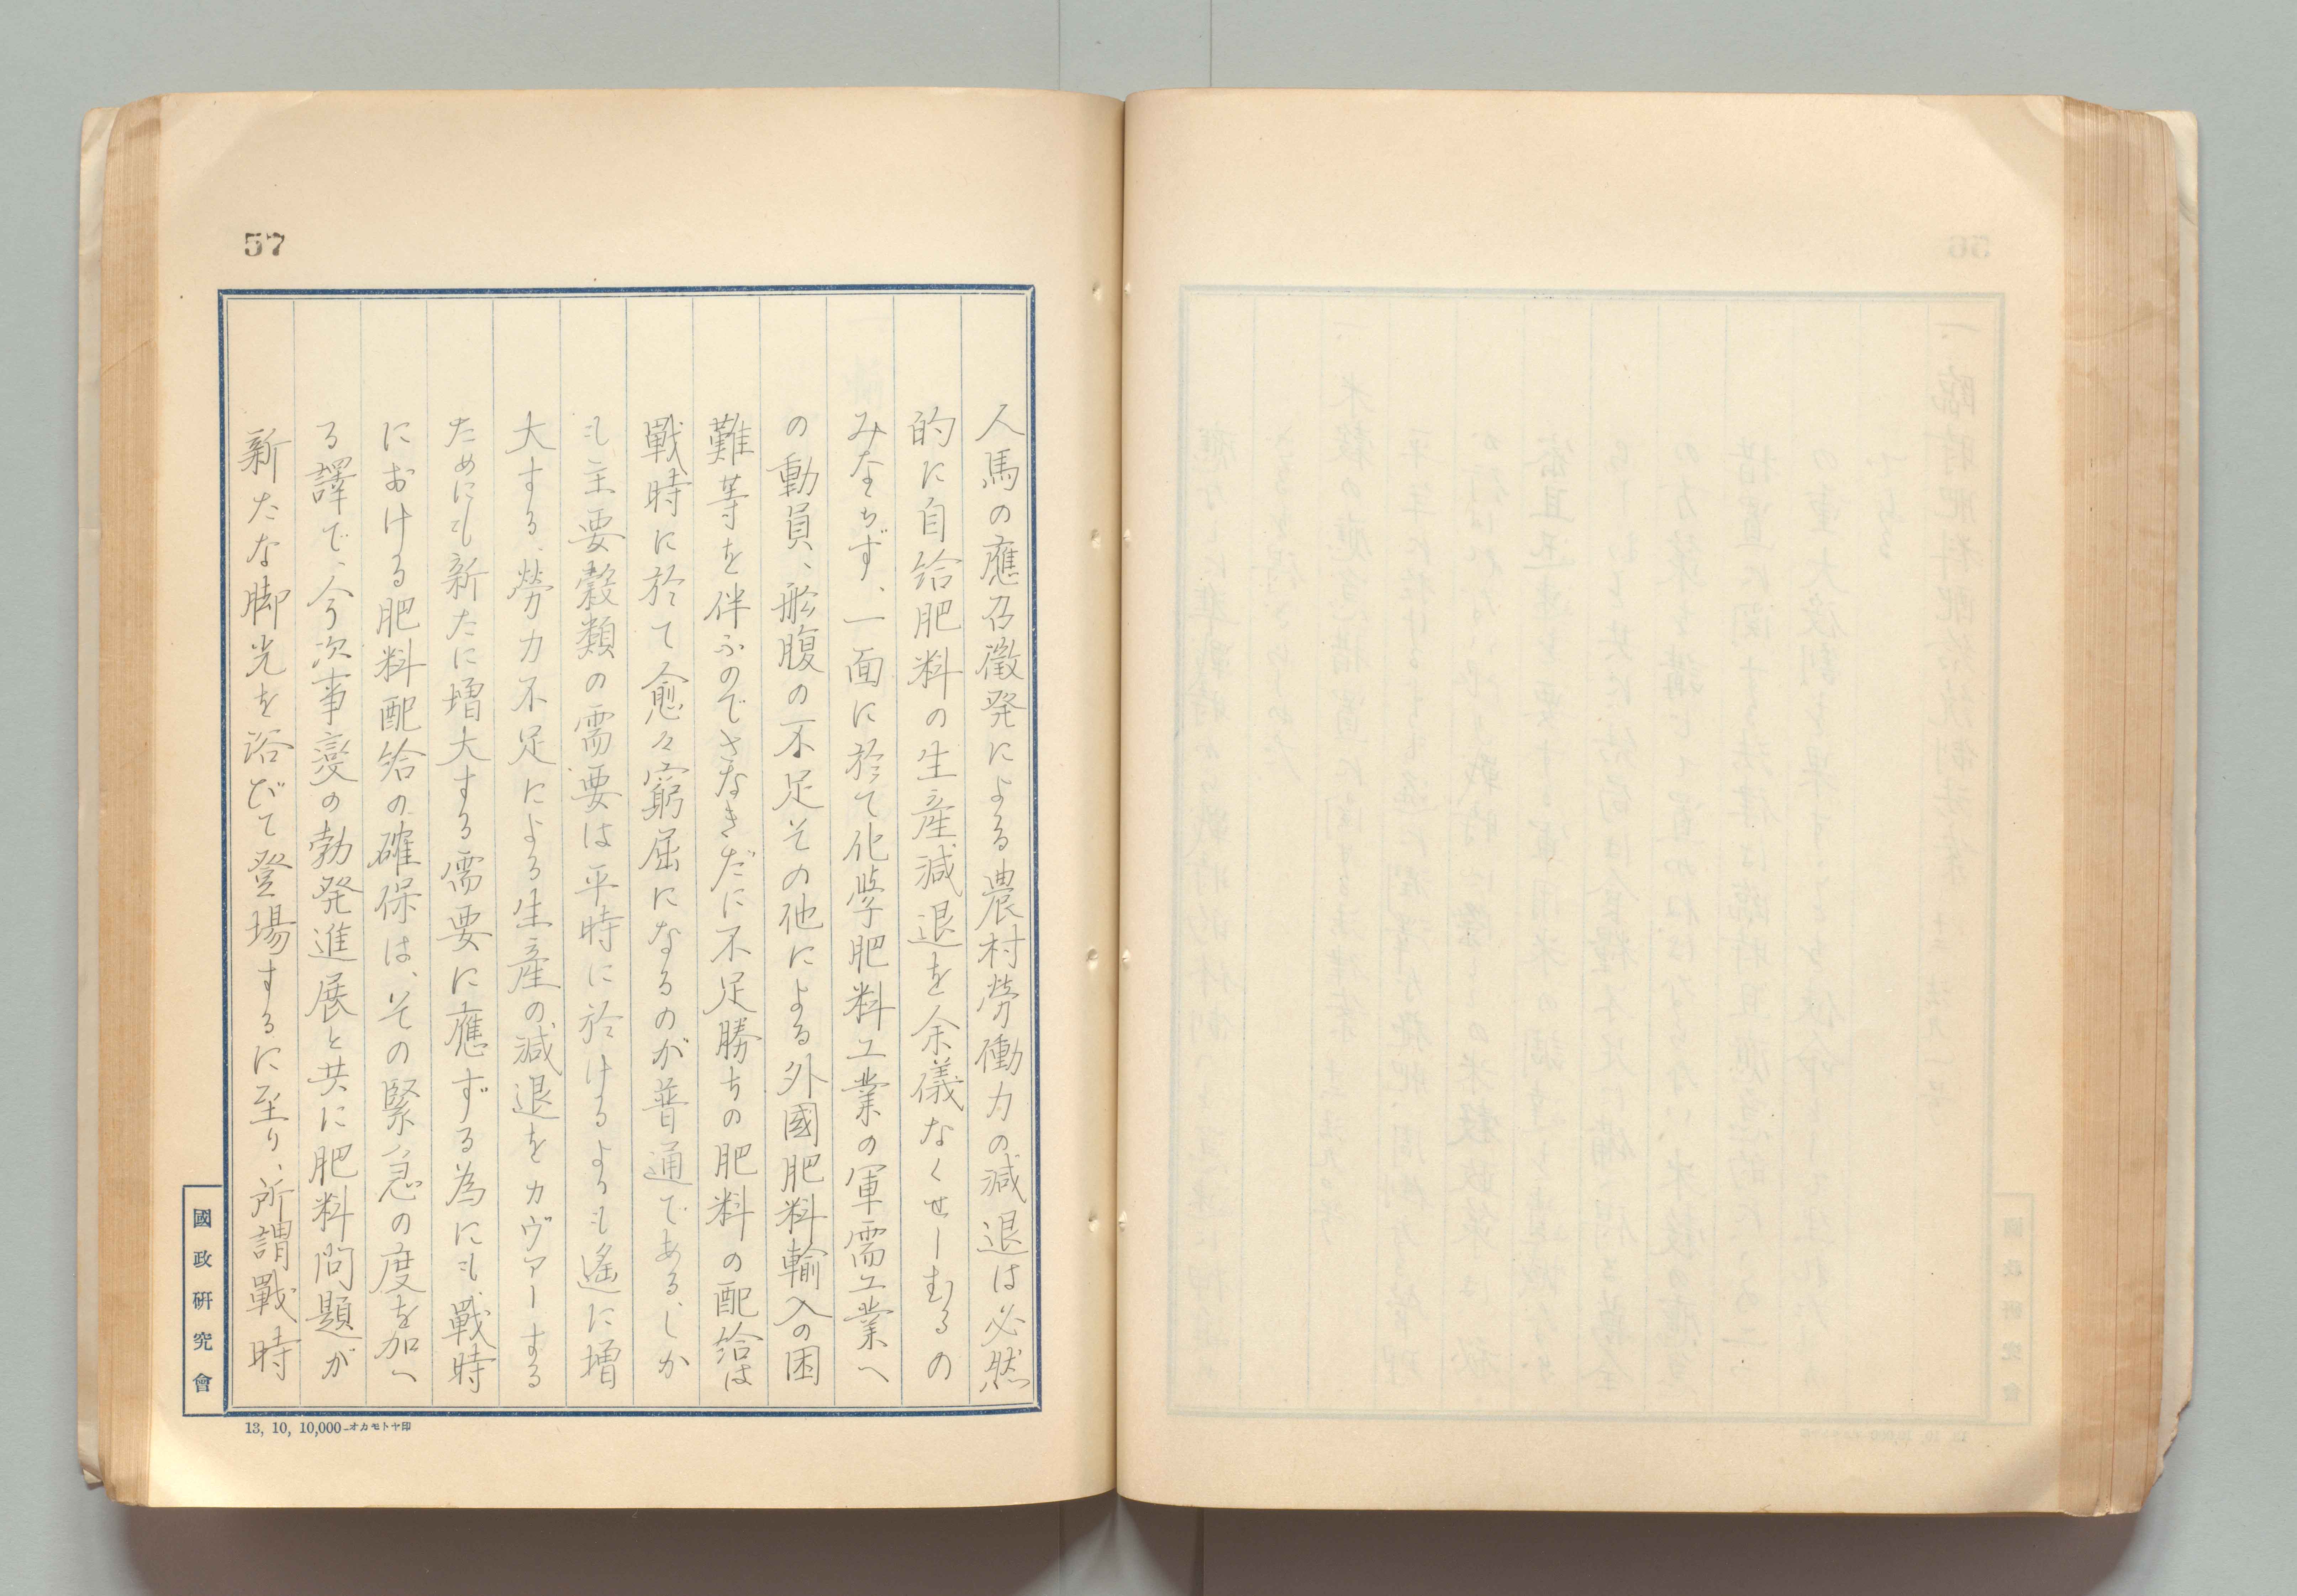 57
人馬の應召徵発による農村勞働力の減退は必然
的に自給肥料の生産減退を余儀なくせしむるの
みならず、一面に於て化學肥料工業の軍需工業へ
の動員、船腹の不足その他による外國肥料輸入の困
難等を伴ふのでさなきだに不足勝ちの肥料の配給は
戰時に於て愈々窮屈になるのが普通である、しか
も主要穀類の需要は平時に於けるよりも遙に増
大する、勞力不足による生産の減退をカヴァーする
ためにも新たに増大する需要に應ずる為にも、戰時
における肥料配給の確保は、その緊急の度を加へ
る譯で、今次事變の勃発進展と共に肥料問題が
新たな脚光を浴びて登場するに至り、所謂戰時
國政硏究會
13, 10, 10,000—オカモトヤ印